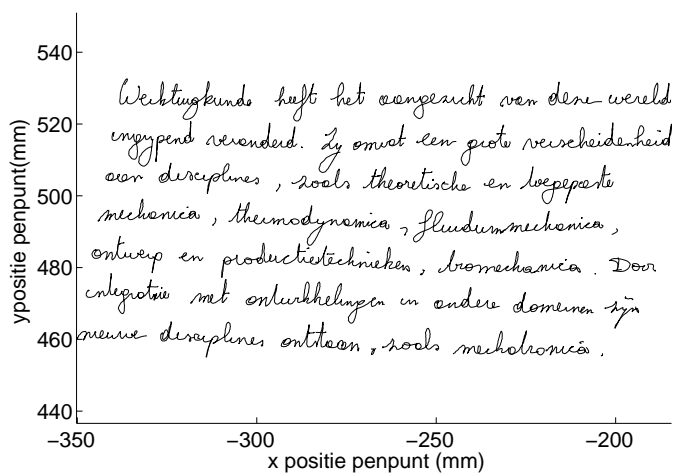 540
520
500
480
460
440
ypositie penpunt(mm)
Werktuigkunde heeft het aangezicht van deze wereld
ingrijpend veranderd. Zij omvat een grote verscheidenheid
aan disciplines, zoals theoretische en toegepaste
mechanica, thermodynamica, fluidummechanica,
ontwerp en productietechnieken, biomechanica. Door
integratie met ontwikkelingen in andere domeinen zijn
nieuwe disciplines ontstaan, zoals mechatronica.
−350 −300 −250 −200
x positie penpunt (mm)